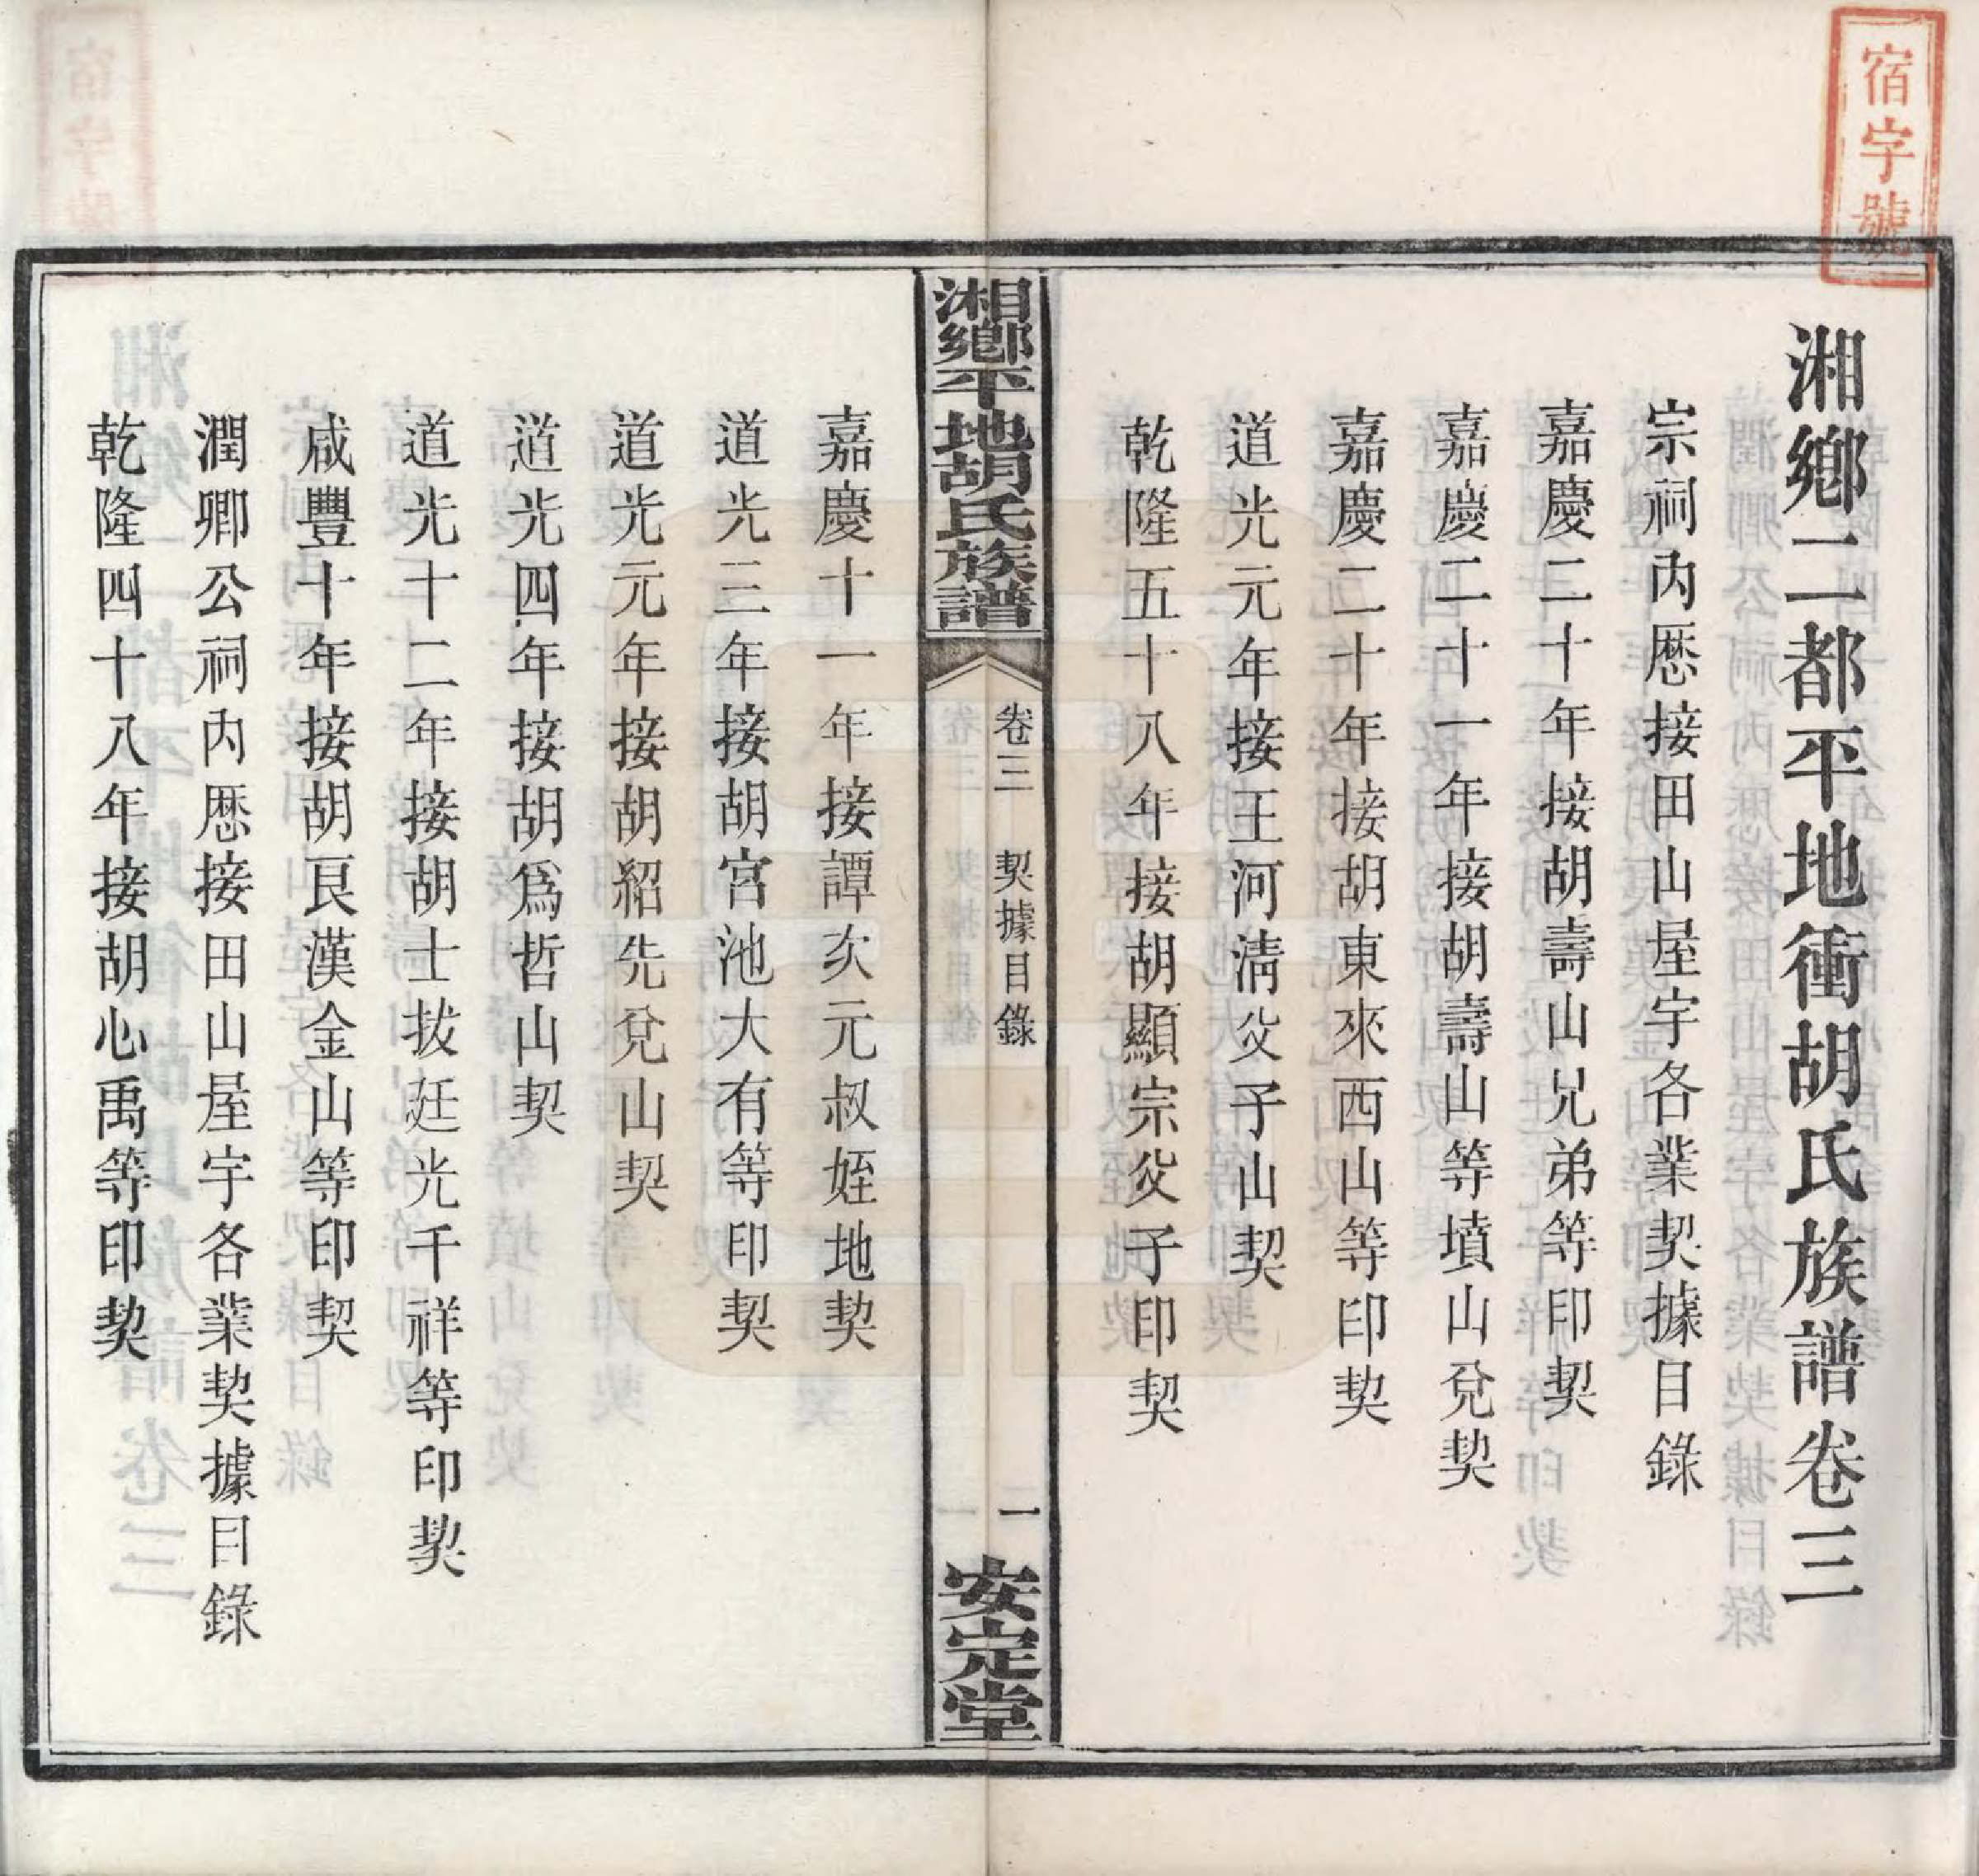 宿字號
湘鄉二都平地衝胡氏族譜卷三
宗祠內厯接田山屋宇各業契據目錄
嘉慶二十年接胡壽山兄弟等印契
嘉慶二十一年接胡壽山等墳山兌契
嘉慶二十年接胡東來西山等印契
道光元年接王河淸父子山契
乾隆五十八年接胡顯宗父子印契
湘鄉平地胡氏族譜
卷三 契據目錄
一
安定堂
嘉慶十一年接譚亥元叔姪地契
道光三年接胡宮池大有等印契
道光元年接胡紹先兌山契
道光四年接胡爲哲山契
道光十二年接胡士拔廷光千祥等印契
咸豐十年接胡艮漢金山等印契
潤卿公祠內厯接田山屋宇各業契據目錄
乾隆四十八年接胡心禹等印契